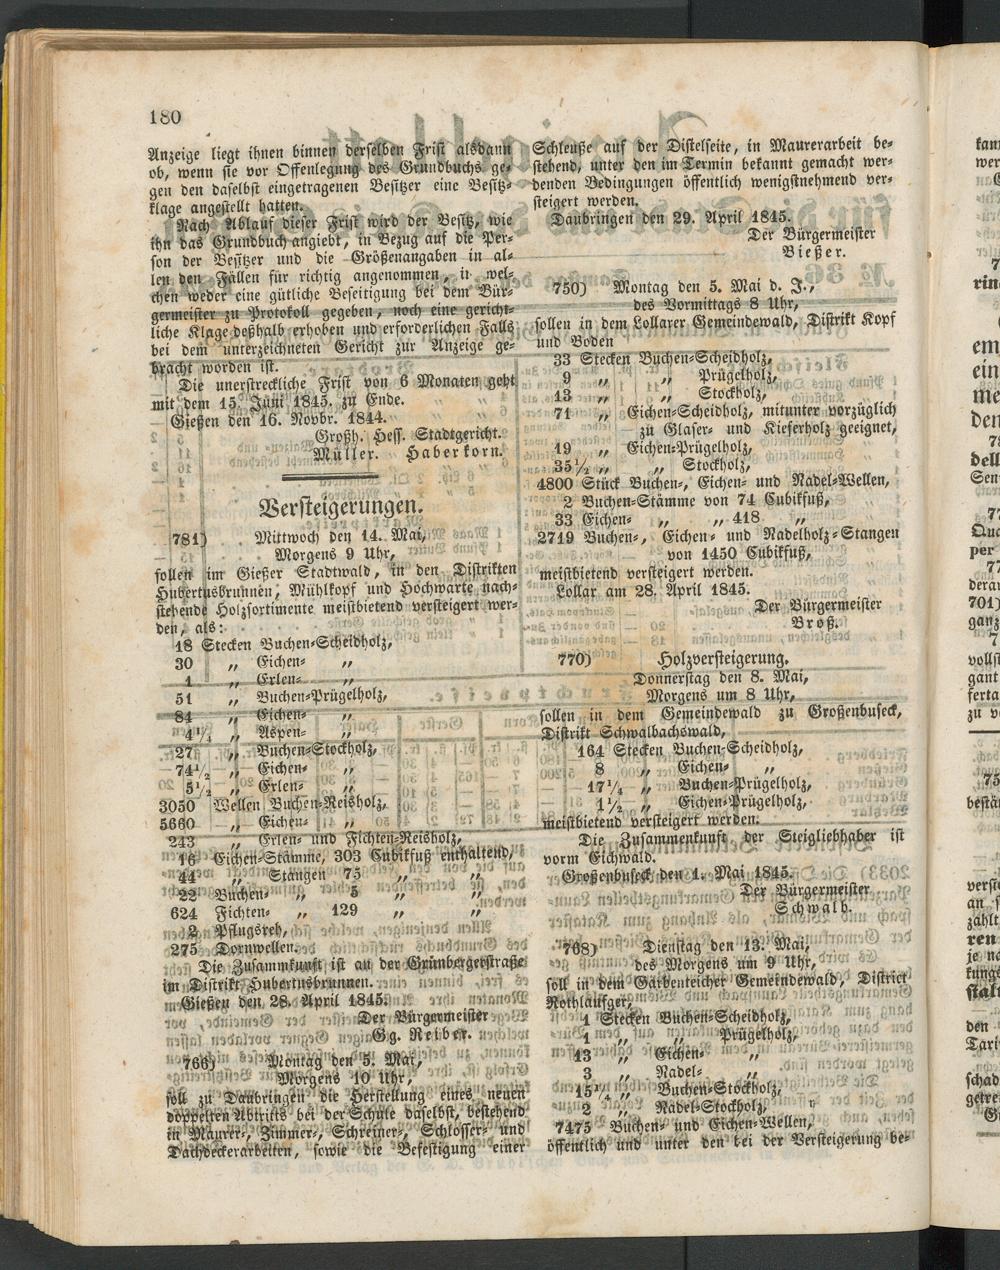 180
Anzeige liegt ihnen binnen derselben Frist alsdann
ob, wenn sie vor Offenlegung des Grundbuchs ge-
gen den daselbst eingetragenen Besitzer eine Besitz-
klage angestellt hatten.
Nach Ablauf dieser Frist wird der Besitz, wie
ihn das Grundbuch angiebt, in Bezug auf die Per-
son der Besitzer und die Größenangaben in al-
len den Fällen für richtig angenommen, in wel-
chen weder eine gütliche Beseitigung bei dem Bür-
germeister zu Protokoll gegeben, noch eine gericht-
liche Klage deßhalb erhoben und erforderlichen Falls
bei dem unterzeichneten Gericht zur Anzeige ge-
bracht worden ist.
Die unerstreckliche Frist von 6 Monaten geht
mit dem 15. Juni 1845. zu Ende.
Gießen den 16. Novbr. 1844.
Großh. Hess. Stadtgericht.
Müller. Haberkorn.
Versteigerungen.
781) Mittwoch den 14. Mai,
Morgens 9 Uhr,
sollen im Gießer Stadtwald, in den Distrikten
Hubertusbrunnen, Mühlkopf und Hochwarte nach-
stehende Holzsortimente meistbietend versteigert wer-
den, als:
18 Stecken Buchen-Scheidholz,
30 „ Eichen- „
1 „ Erlen- „
51 „ Buchen-Prügelholz,
84 „ Eichen- „
4¼ „ Aspen- „
27 „ Buchen-Stockholz,
74½ „ Eichen- „
5½ „ Erlen- „
3050 Wellen Buchen-Reisholz,
5660 „ Eichen- „
243 „ Erlen- und Fichten-Reisholz,
16 Eichen-Stämme, 303 Cubikfuß enthaltend,
44 „ Stangen 75 „ „
22 Buchen- „ 5 „ „
624 Fichten- „ 129 „ „
2 Pflugsreh,
275 Dornwellen.
Die Zusammkunft ist an der Grünbergerstraße
im Distrikt Hubertusbrunnen.
Gießen den 28. April 1845.
Der Bürgermeister
Gg. Reiber.
766) Montag den 5. Mai,
Morgens 10 Uhr,
soll zu Daubringen die Herstellung eines neuen
doppelten Abtritts bei der Schule daselbst, bestehend
in Maurer-, Zimmer-, Schreiner-, Schlosser- und
Dachdeckerarbeiten, sowie die Befestigung einer
Schleuße auf der Distelseite, in Maurerarbeit be-
stehend, unter den im Termin bekannt gemacht wer-
denden Bedingungen öffentlich wenigstnehmend ver-
steigert werden.
Daubringen den 29. April 1845.
Der Bürgermeister
Bießer.
750) Montag den 5. Mai d. J.,
des Vormittags 8 Uhr,
sollen in dem Lollarer Gemeindewald, Distrikt Kopf
und Boden
33 Stecken Buchen-Scheidholz,
9 „ „ Prügelholz,
13 „ „ Stockholz,
71 „ Eichen-Scheidholz, mitunter vorzüglich
zu Glaser- und Kieferholz geeignet,
19 „ Eichen-Prügelholz,
35½ „ „ Stockholz,
4800 Stück Buchen-, Eichen- und Nadel-Wellen,
2 Buchen-Stämme von 74 Cubikfuß,
33 Eichen- „ „ 418 „
2719 Buchen-, Eichen- und Nadelholz-Stangen
von 1450 Cubikfuß,
meistbietend versteigert werden.
Lollar am 28. April 1845.
Der Bürgermeister
Broß.
770) Holzversteigerung.
Donnerstag den 8. Mai,
Morgens um 8 Uhr,
sollen in dem Gemeindewald zu Großenbuseck,
Distrikt Schwalbachswald,
164 Stecken Buchen-Scheidholz,
8 „ Eichen- „
17¼ „ Buchen-Prügelholz,
1½ „ Eichen-Prügelholz,
meistbietend versteigert werden.
Die Zusammenkunft der Steigliebhaber ist
vorm Eichwald.
Großenbuseck den 1. Mai 1845.
Der Bürgermeister
Schwalb.
768) Dienstag den 13. Mai,
des Morgens um 9 Uhr,
soll in dem Garbenteicher Gemeindewald, District
Rothlaufger,
1 Stecken Buchen-Scheidholz,
1 „ „ Prügelholz,
13 „ Eichen- „
3 „ Nadel- „
15¼ „ Buchen-Stockholz,
2 „ Nadel-Stockholz,
7475 Buchen- und Eichen-Wellen,
öffentlich und unter den bei der Versteigerung be-